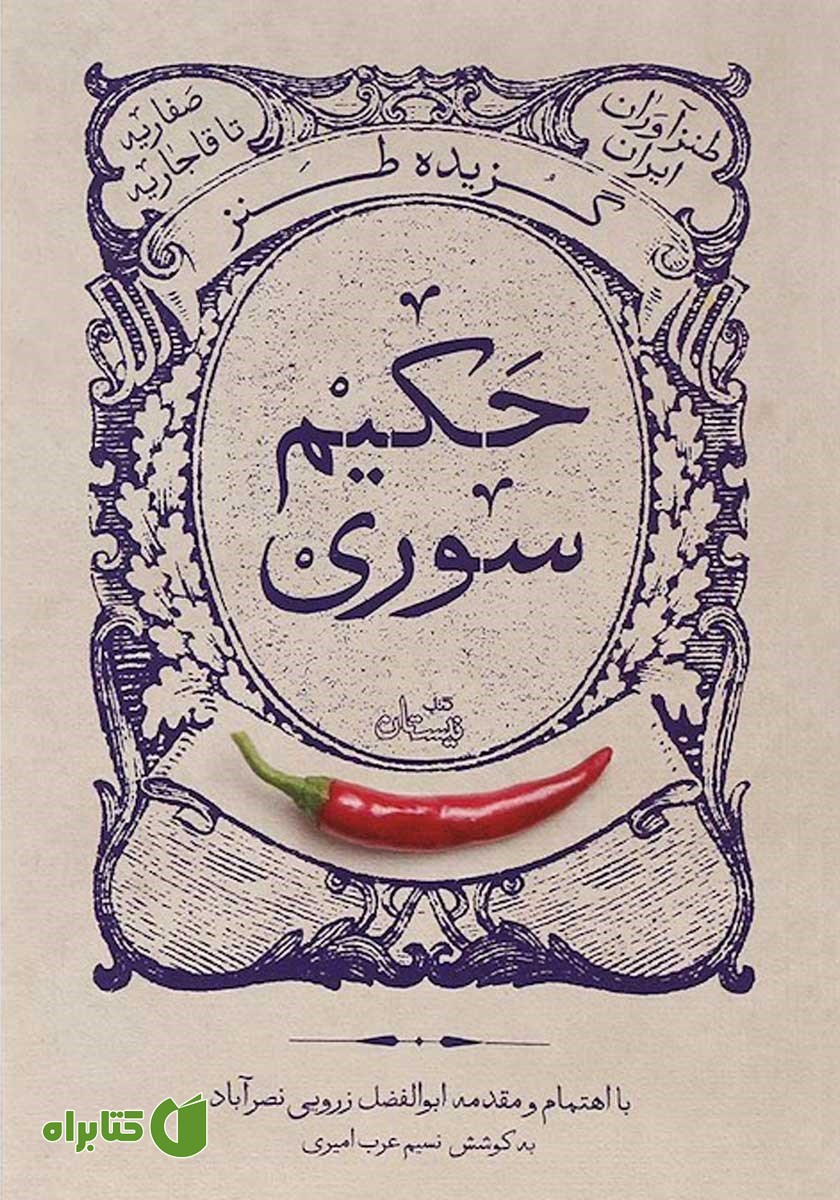 طنزآوران
ایران
صفاریه
تا قاجاریه
گزیده طنز
حکیم
سوری
کتاب
نیستان
با اهتمام و مقدمه ابوالفضل زرویی نصرآباد
به کوشش نسیم عرب امیری
کتابراه